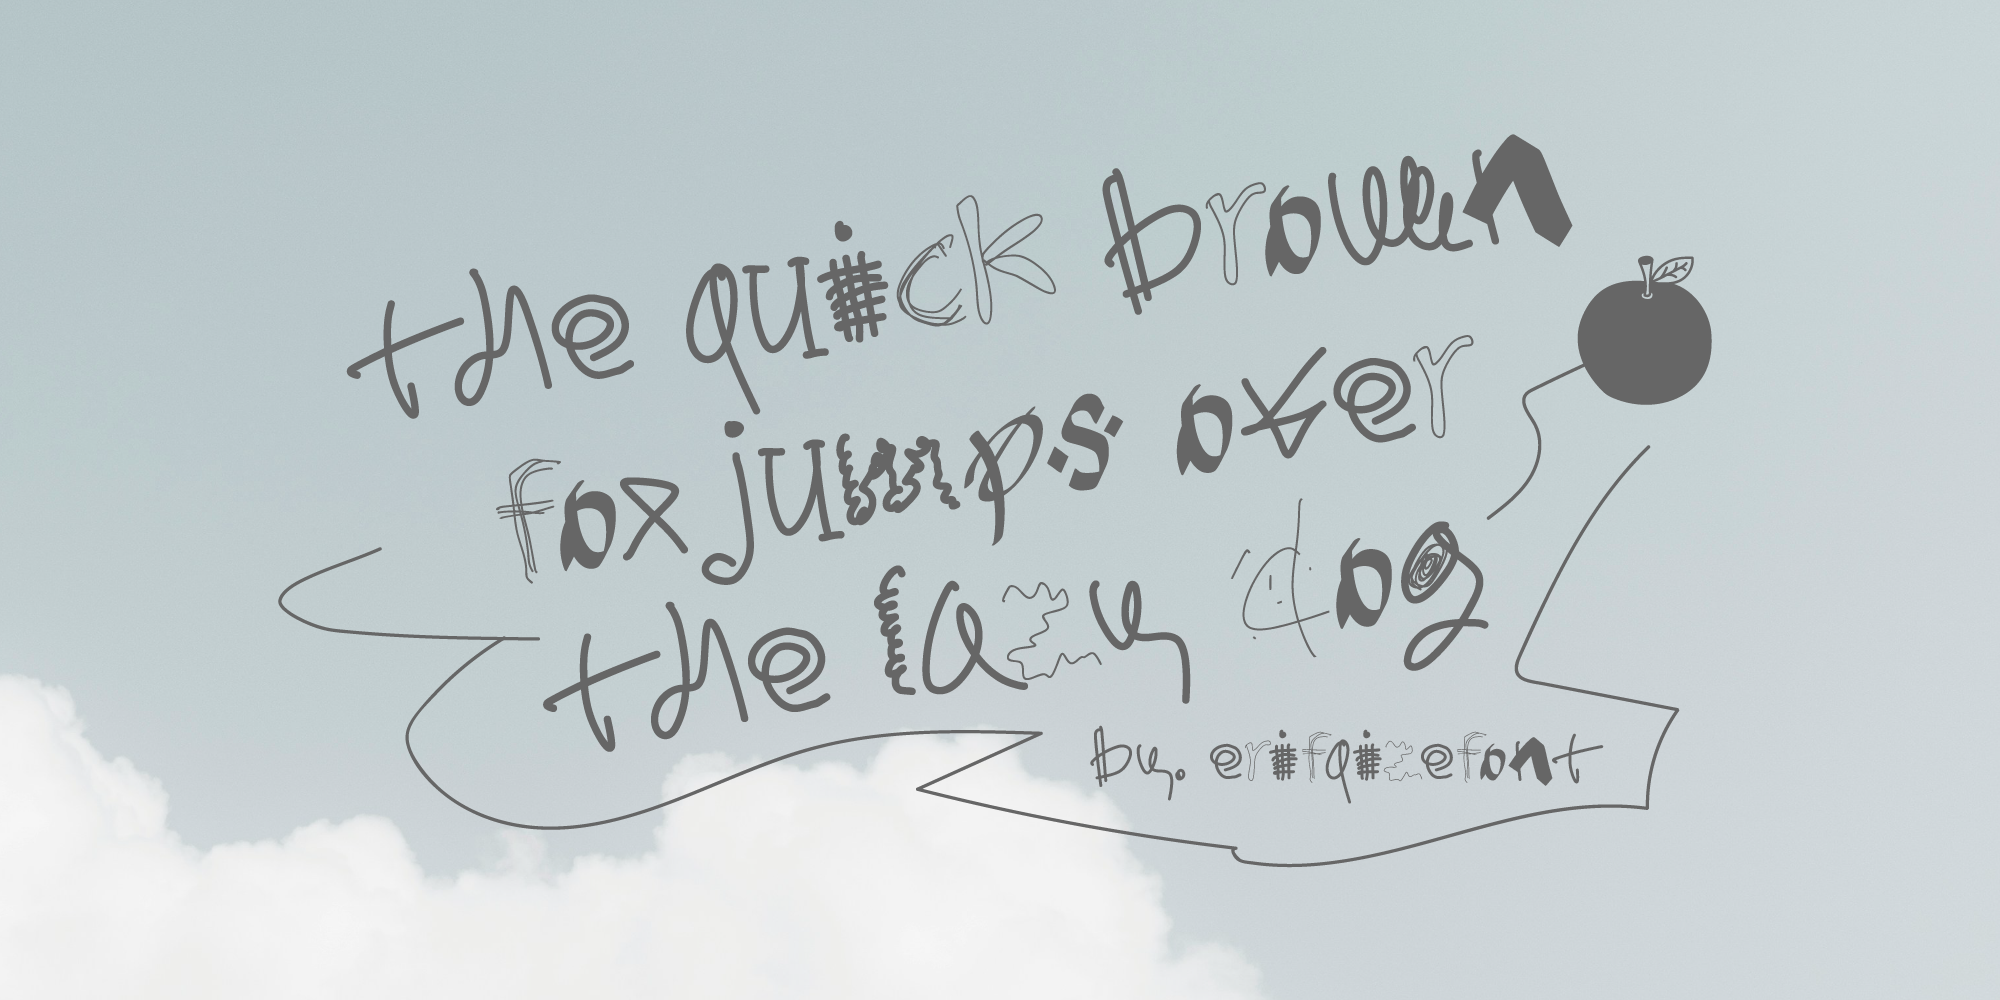 the quick brown
fox jumps over
the lazy dog
by. erifqizefont